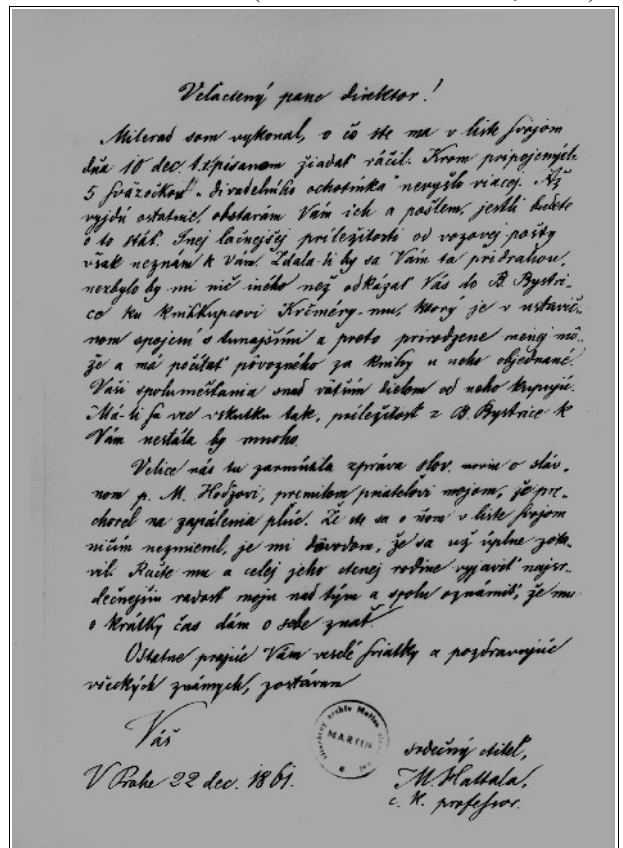 Veľactený pane direktor!
Milerad som vykonal, o čo ste ma v liste svojom
dňa 10 dec. t.r. písanom žiadať ráčil. Krom pripojených
5 sväzočkov „divadelního ochotníka" nevyšlo viacej. Až
vyjdú ostatnie, obstarám Vám ich a pošlem, jestli budete
o to stáť. Inej lacnejšej príležitosti od vozovej pošty
však neznám k Vám. Zdala-li by sa Vám ta pridrahou,
nezbylo by mi nič iného než odkázať Vás do B. Bystri-
ce ku knihkupcovi Krčméry-mu, ktorý je v ustavič-
nom spojení s tunajšími a preto prirodzene menej mô-
že a má počítať pôvozného za knihy u neho objednané.
Vaši spolumešťania snad väčším dielom od neho kupujú.
Má-li sa vec vskutku tak, príležitosť z B. Bystrice k
Vám nestála by mnoho.
Velice nás tu zarmútila zpráva slov. novin o sláv-
nom p. M. Hodžovi, premilom priateľovi mojom, že pre-
chorel na zapálenia plúc. Že ste sa o ňom v liste svojom
ničím nezmienil, je mi dôvodom, že sa už úplne zota-
vil. Račte mu a celej jeho ctenej rodine vyjaviť najsr-
dečnejšiu radosť moju nad tým a spolu oznámiť, že mu
o krátky čas dám o sebe znať.
Ostatne prajúc Vám veselé sviatky a pozdravujúc
všeckých známych, zostávam
Váš
srdečný ctiteľ,
V Prahe 22 dec. 1861.
M. Hattala,
c. k. professor.
literárny archív Matice
MARTIN